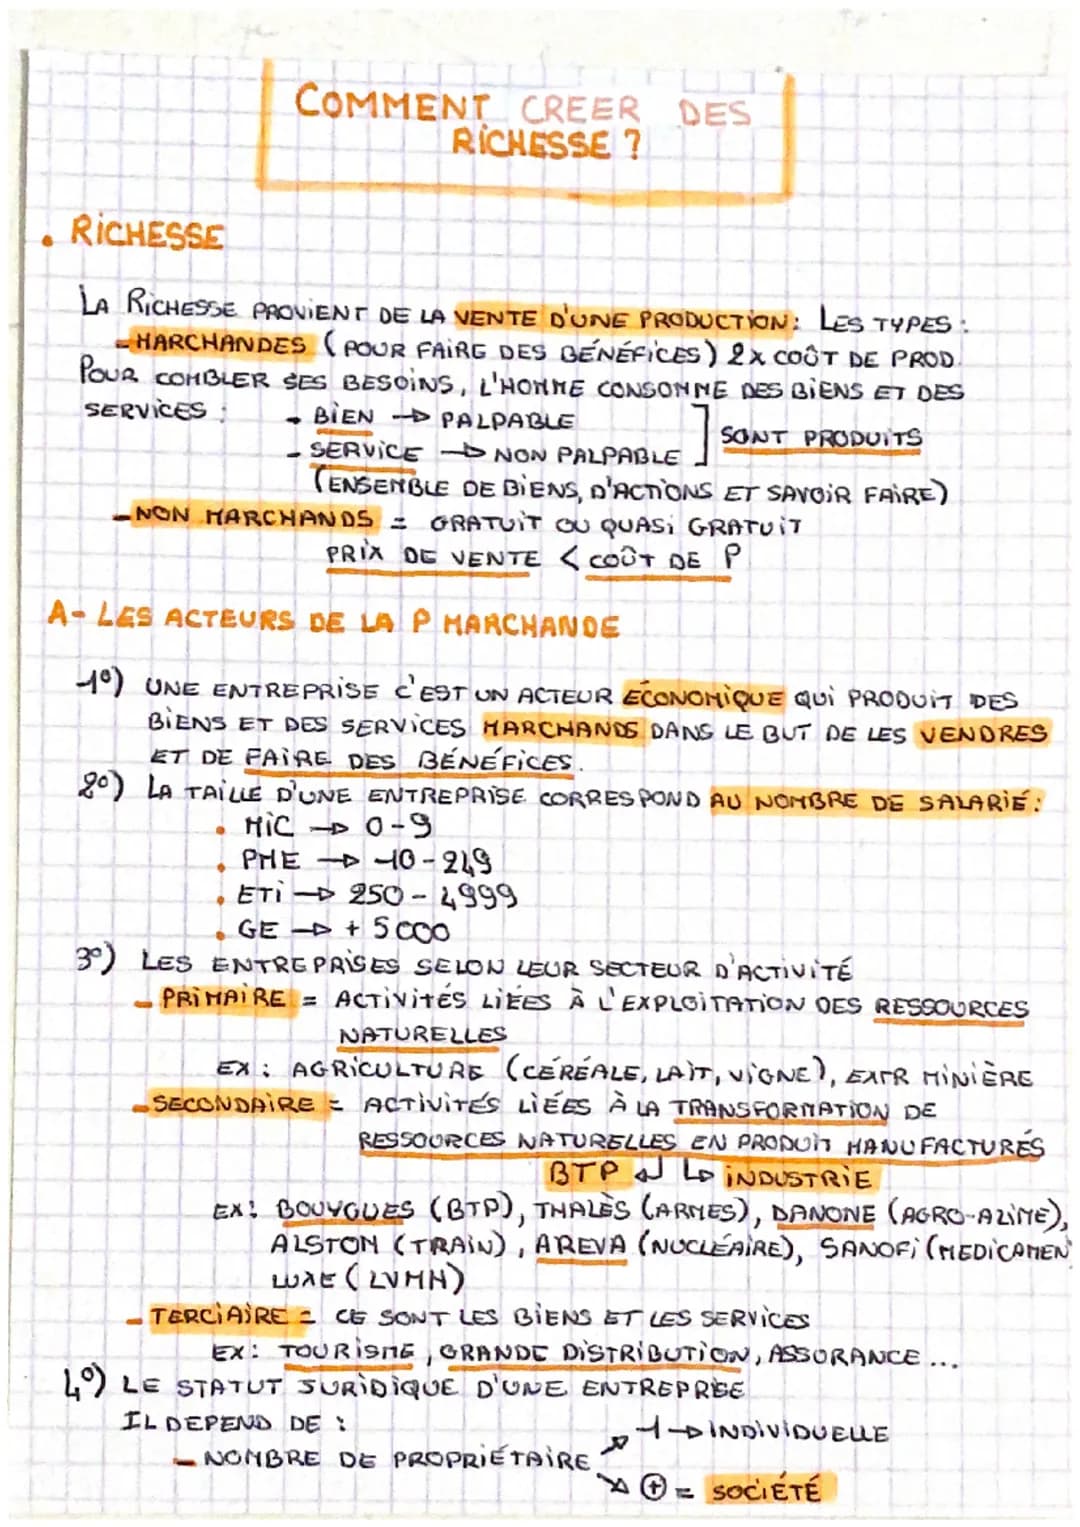 COMMENT CREER DES
RICHESSE ?
• RICHESSE
LA RICHESSE PROVIENT DE LA VENTE D'UNE PRODUCTION: LES TYPES :
- MARCHANDES (POUR FAIRE DES BÉNÉFICES) 2x COÛT DE PROD.
POUR COMBLER SES BESOINS, L'HOMME CONSOMME DES BIENS ET DES
SERVICES :
- BIEN → PALPABLE
- SERVICE → NON PALPABLE ] SONT PRODUITS
(ENSEMBLE DE BIENS, D'ACTIONS ET SAVOIR FAIRE)
- NON MARCHANDS = GRATUIT OU QUASI GRATUIT
PRIX DE VENTE < COÛT DE P
A- LES ACTEURS DE LA P MARCHANDE
1°) UNE ENTREPRISE C'EST UN ACTEUR ÉCONOMIQUE QUI PRODUIT DES
BIENS ET DES SERVICES MARCHANDS DANS LE BUT DE LES VENDRES
ET DE FAIRE DES BÉNÉFICES.
2°) LA TAILLE D'UNE ENTREPRISE CORRESPOND AU NOMBRE DE SALARIÉ :
• MIC → 0-9
• PME → 10-249
• ETI → 250 - 4999
• GE → + 5000
3°) LES ENTREPRISES SELON LEUR SECTEUR D'ACTIVITÉ
- PRIMAIRE = ACTIVITÉS LIÉES À L'EXPLOITATION DES RESSOURCES
NATURELLES
EX : AGRICULTURE (CÉRÉALE, LAIT, VIGNE), EXTR MINIÈRE
- SECONDAIRE = ACTIVITÉS LIÉES À LA TRANSFORMATION DE
RESSOURCES NATURELLES EN PRODUIT MANUFACTURÉS
BTP ↲ ↳ INDUSTRIE
EX: BOUYGUES (BTP), THALÈS (ARMES), DANONE (AGRO-ALIME),
ALSTOM (TRAIN), AREVA (NUCLÉAIRE), SANOFI (MEDICAMEN
LUXE (LVMH)
- TERCIAIRE = CE SONT LES BIENS ET LES SERVICES
EX: TOURISME, GRANDE DISTRIBUTION, ASSURANCE ...
4°) LE STATUT JURIDIQUE D'UNE ENTREPRISE
IL DEPEND DE :
↗ 1 → INDIVIDUELLE
- NOMBRE DE PROPRIÉTAIRE
↘ ⊕ = SOCIÉTÉ